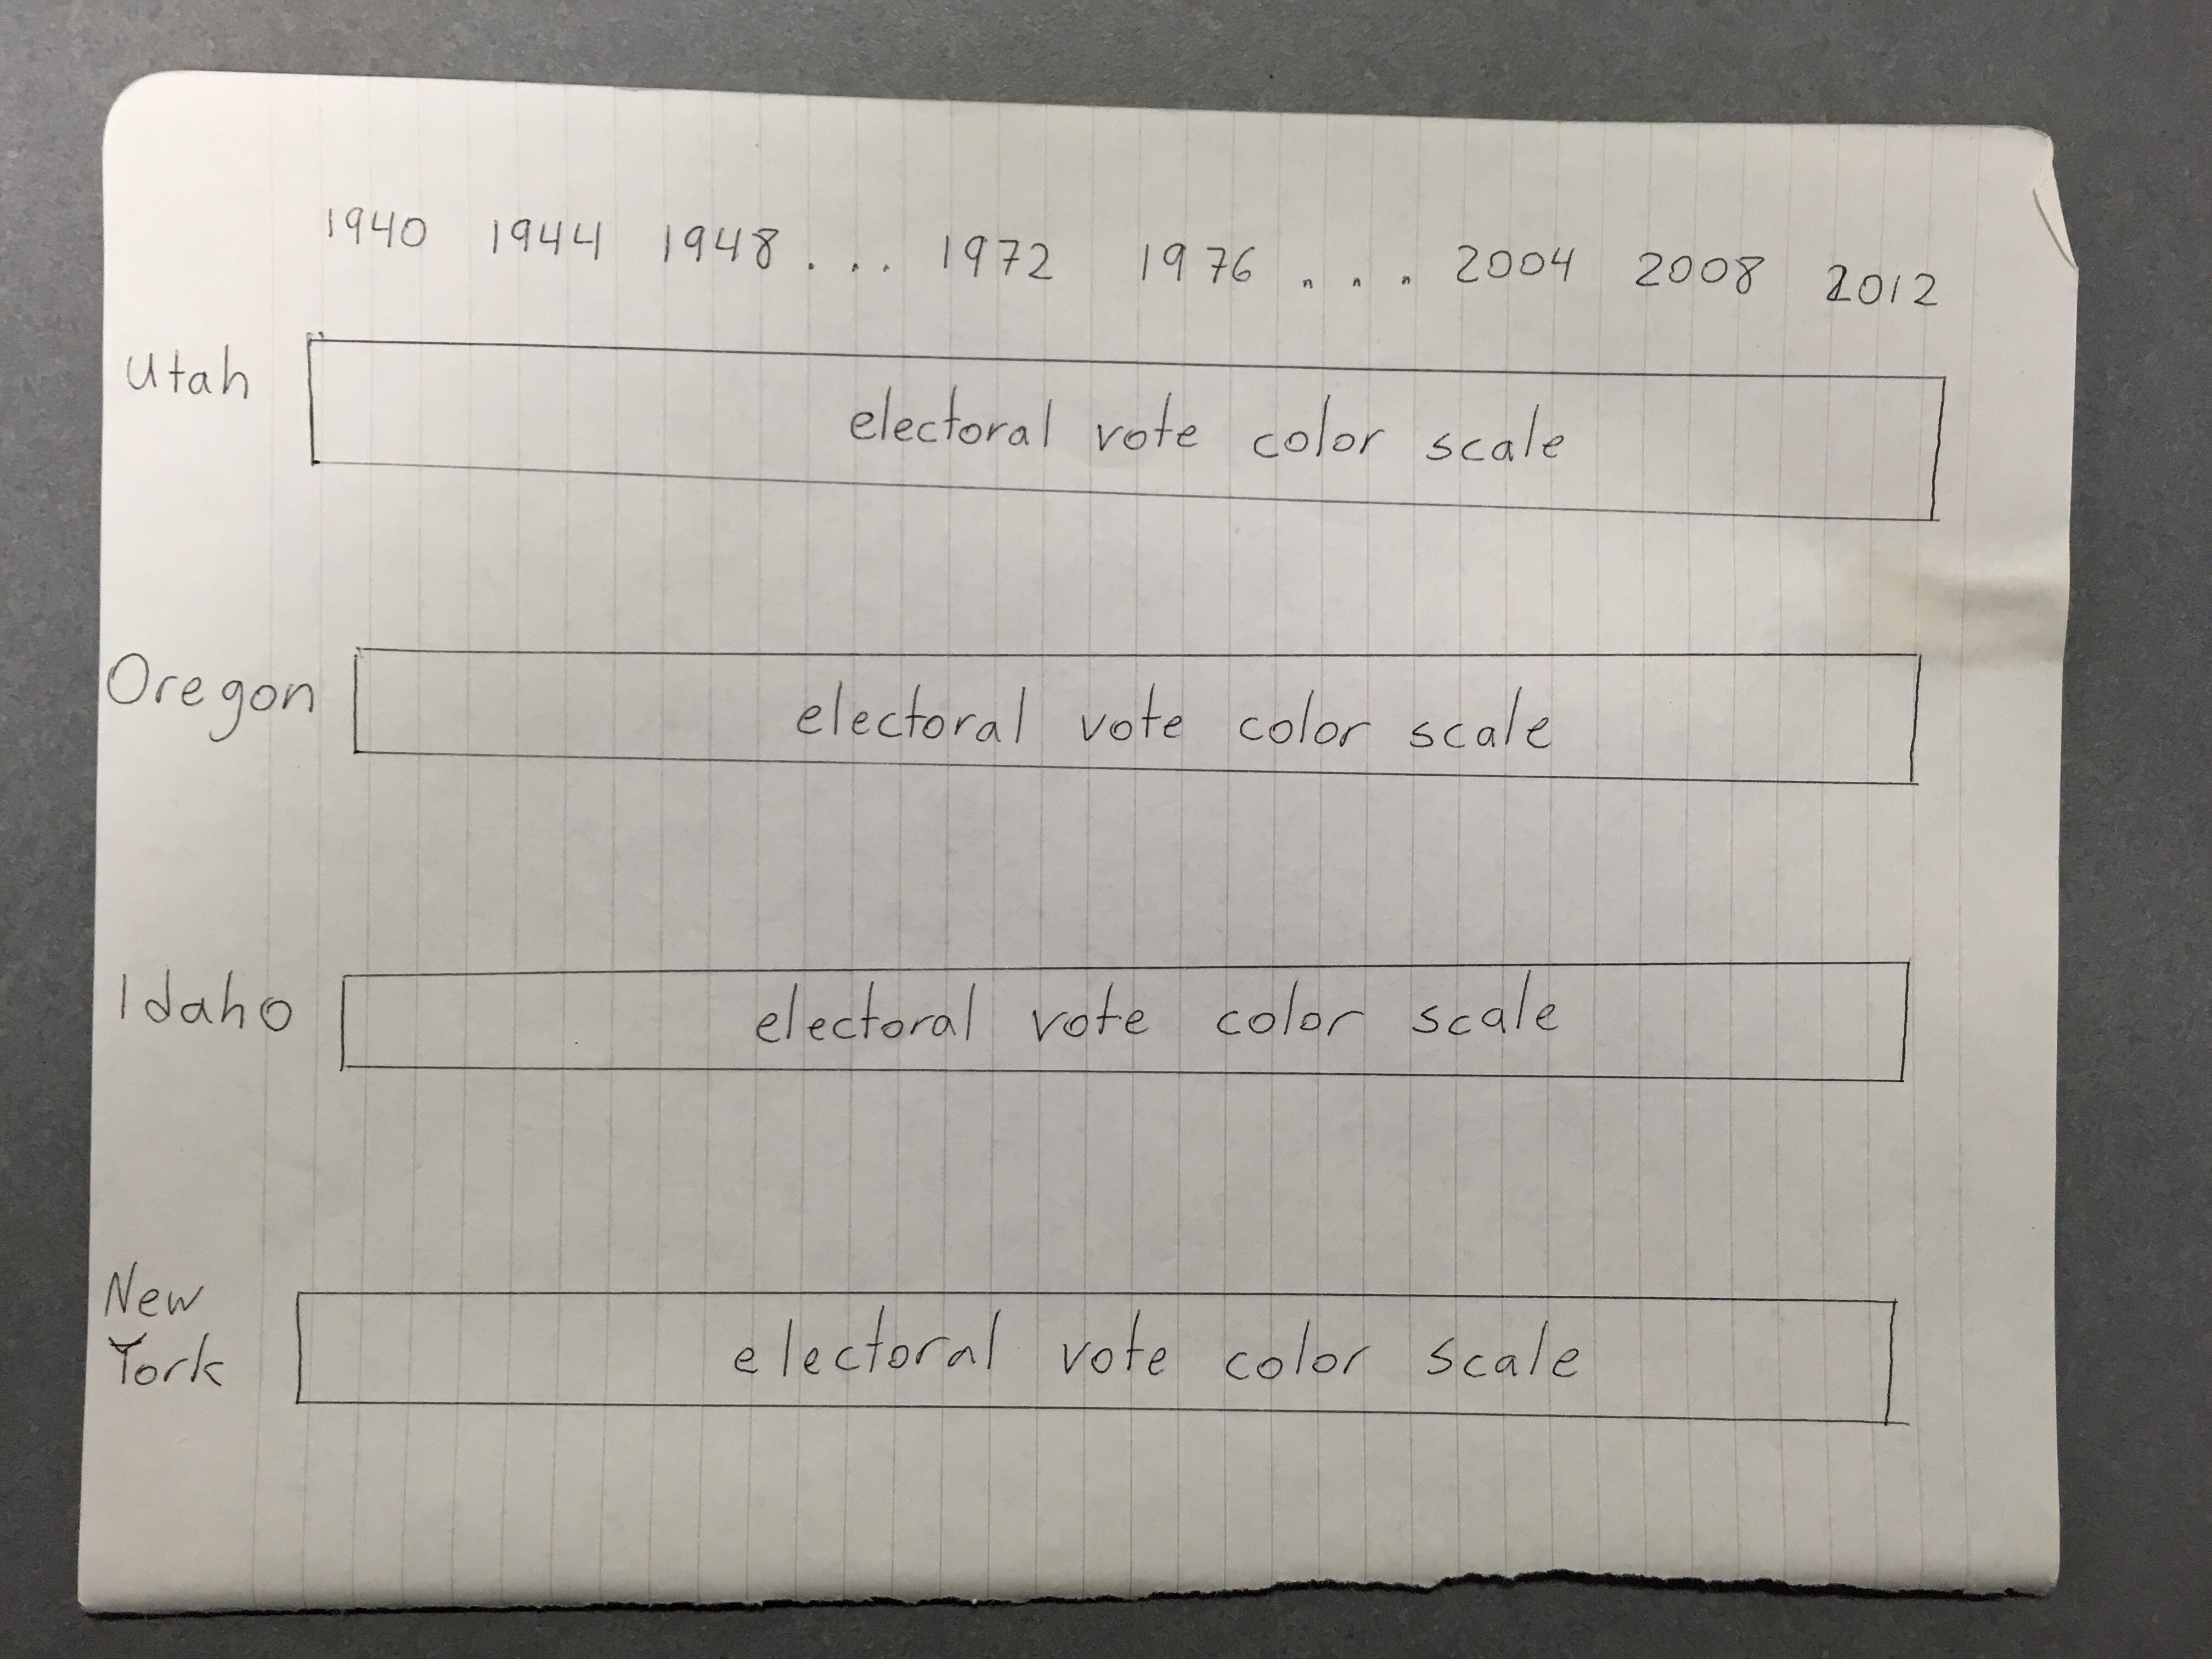 1940 1944 1948 . . . 1972 1976 . . . 2004 2008 2012
Utah electoral vote color scale
Oregon electoral vote color scale
Idaho electoral vote color scale
New
York electoral vote color scale